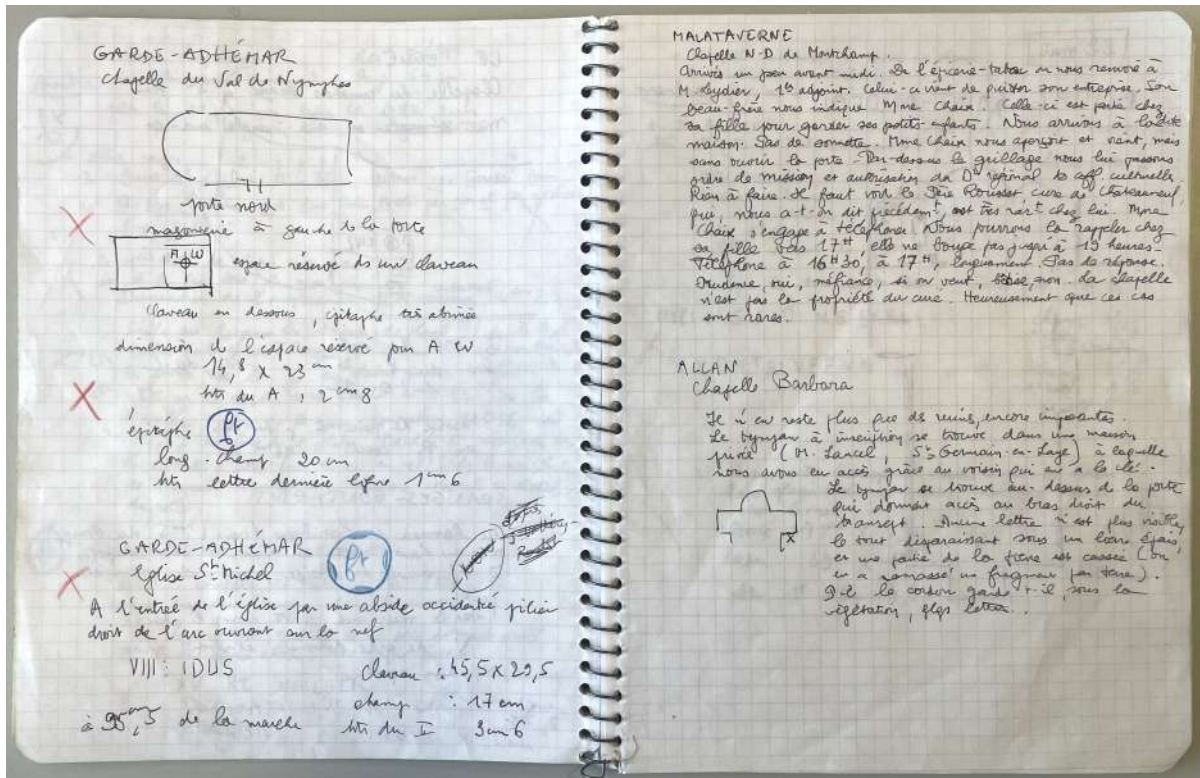 GARDE-ADHÉMAR
Chapelle du Val des Nymphes
porte nord
maçonnerie à gauche de la porte
A W
espace réservé ds un claveau
claveau en dessous, épitaphe très abimée
dimension de l'espace réservé pour A W
14,8 x 23 cm
htr du A, 2 cm 8
épitaphe pt
long. champ 20 cm
htr lettre dernière ligne 1 cm 6
GARDE-ADHÉMAR
église St Michel
pt
A l'entrée de l'église par une abside occidentée pilier
droit de l'arc ouvrant sur la nef
VIII : IDUS
claveau : 45,5 x 29,5
champ : 17 cm
à 95,5 de la marche
htr du I 3 cm 6
MALATAVERNE
Chapelle N-D de Montchamp.
Arrivés un peu avant midi. De l'épicerie-tabac on nous renvoie à
M. Leydier, 1er adjoint. Celui-ci vient de quitter son entreprise. Son
beau-frère nous indique Mme Chaix. Celle-ci est partie chez
sa fille pour garder ses petits-enfants. Nous arrivons à ladite
maison. Pas de sonnette. Mme Chaix nous aperçoit et vient, mais
sans ouvrir la porte. Par-dessus le grillage nous lui passons
ordre de mission et autorisation du Dr régional des aff. culturelles
Rien à faire. Il faut voir le Père Rousset cure de Chateauneuf,
que, nous a-t-on dit précédemt, est très rart chez lui. Mme
Chaix s'engage à téléphoner. Nous pourrons la rappeler chez
sa fille vers 17H elle ne bouge pas jusqu'à 19 heures.
Téléphone à 16H30, à 17H, longuement. Pas de réponse.
Prudence, oui, méfiance, si on veut, bêtise, non. La chapelle
n'est pas la propriété du cure. Heureusement que ces cas
sont rares.
ALLAN
Chapelle Barbara
Il n'en reste plus que ds ruines, encore imposantes.
Le tympan à inscription se trouve dans une maison
privée (M. Lancel, St Germain-en-Laye) à laquelle
nous avons eu accès grâce au voisin qui en a la clé.
Le tympan se trouve au-dessus de la porte
qui donnait accès au bras droit du
transept. Aucune lettre n'est plus visible,
le tout disparaissant sous un lierre épais,
et une partie de la pierre est cassée (on
en a ramassé un fragment par terre).
x
le cordon garde-t-il sous la
végétation, qlqs lettres.